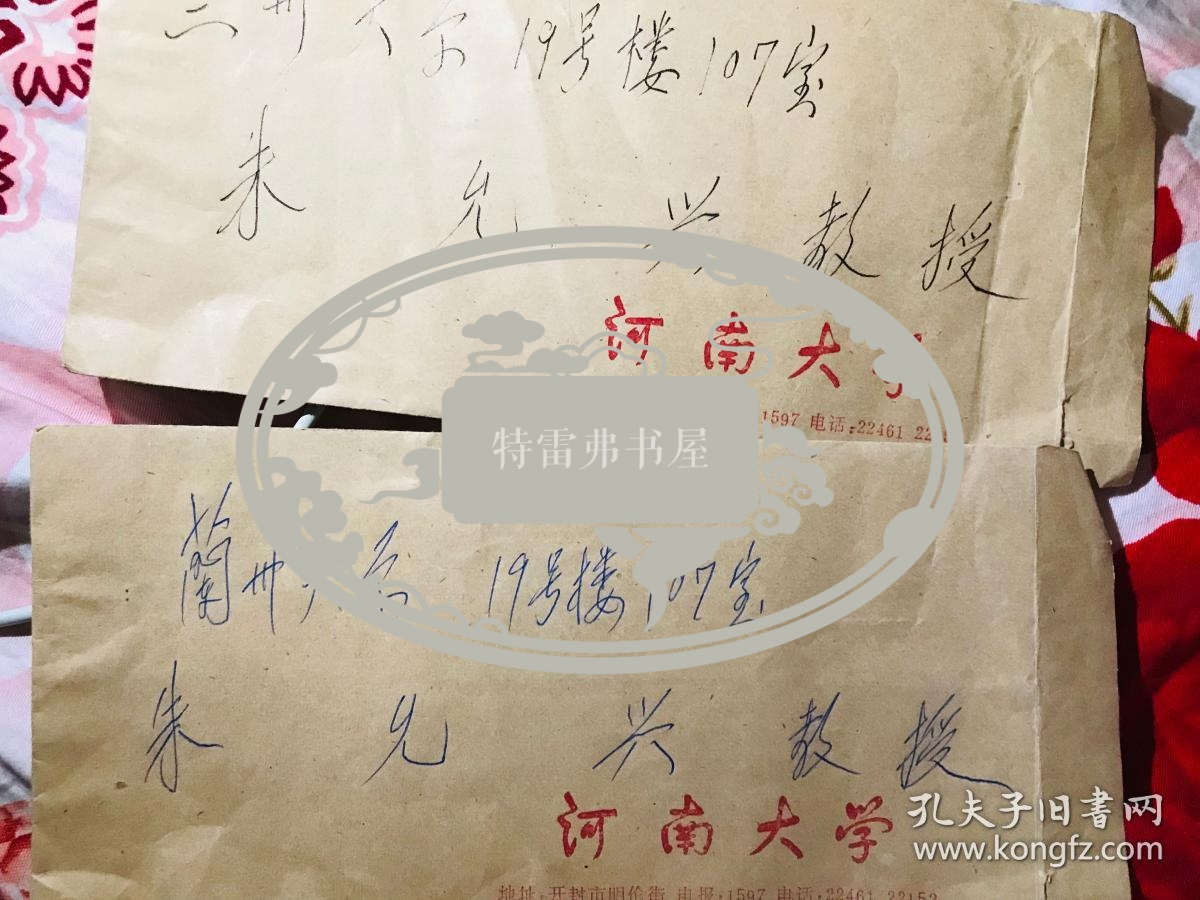 兰州大学 19号楼107室
朱允兴教授
河南大学
1597 电话:22461
特雷弗书屋
蘭州大学 19号楼107室
朱允兴教授
河南大学
地址:开封市明伦街 电报:1597 电话:22461 22152
孔夫子旧书网
www.kongfz.com